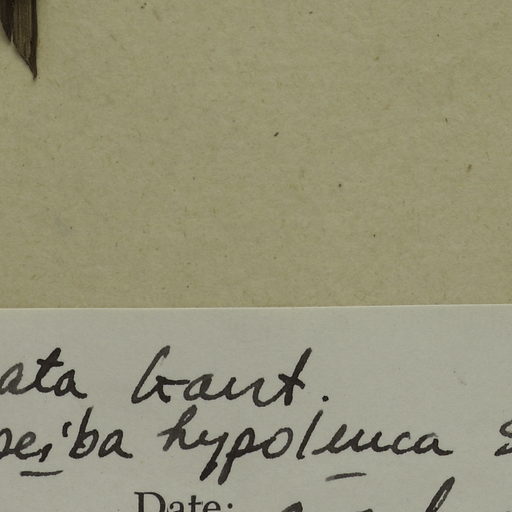 ata Gaert.
peiba hypoleuca S
Date: